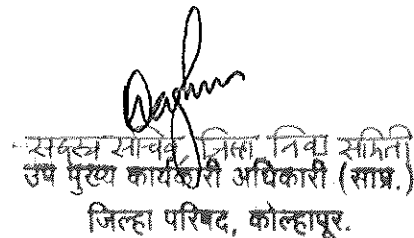 सदस्य सचिव, जिल्हा निवड समिती
उप मुख्य कार्यकारी अधिकारी (साप्र.)
जिल्हा परिषद, कोल्हापूर.